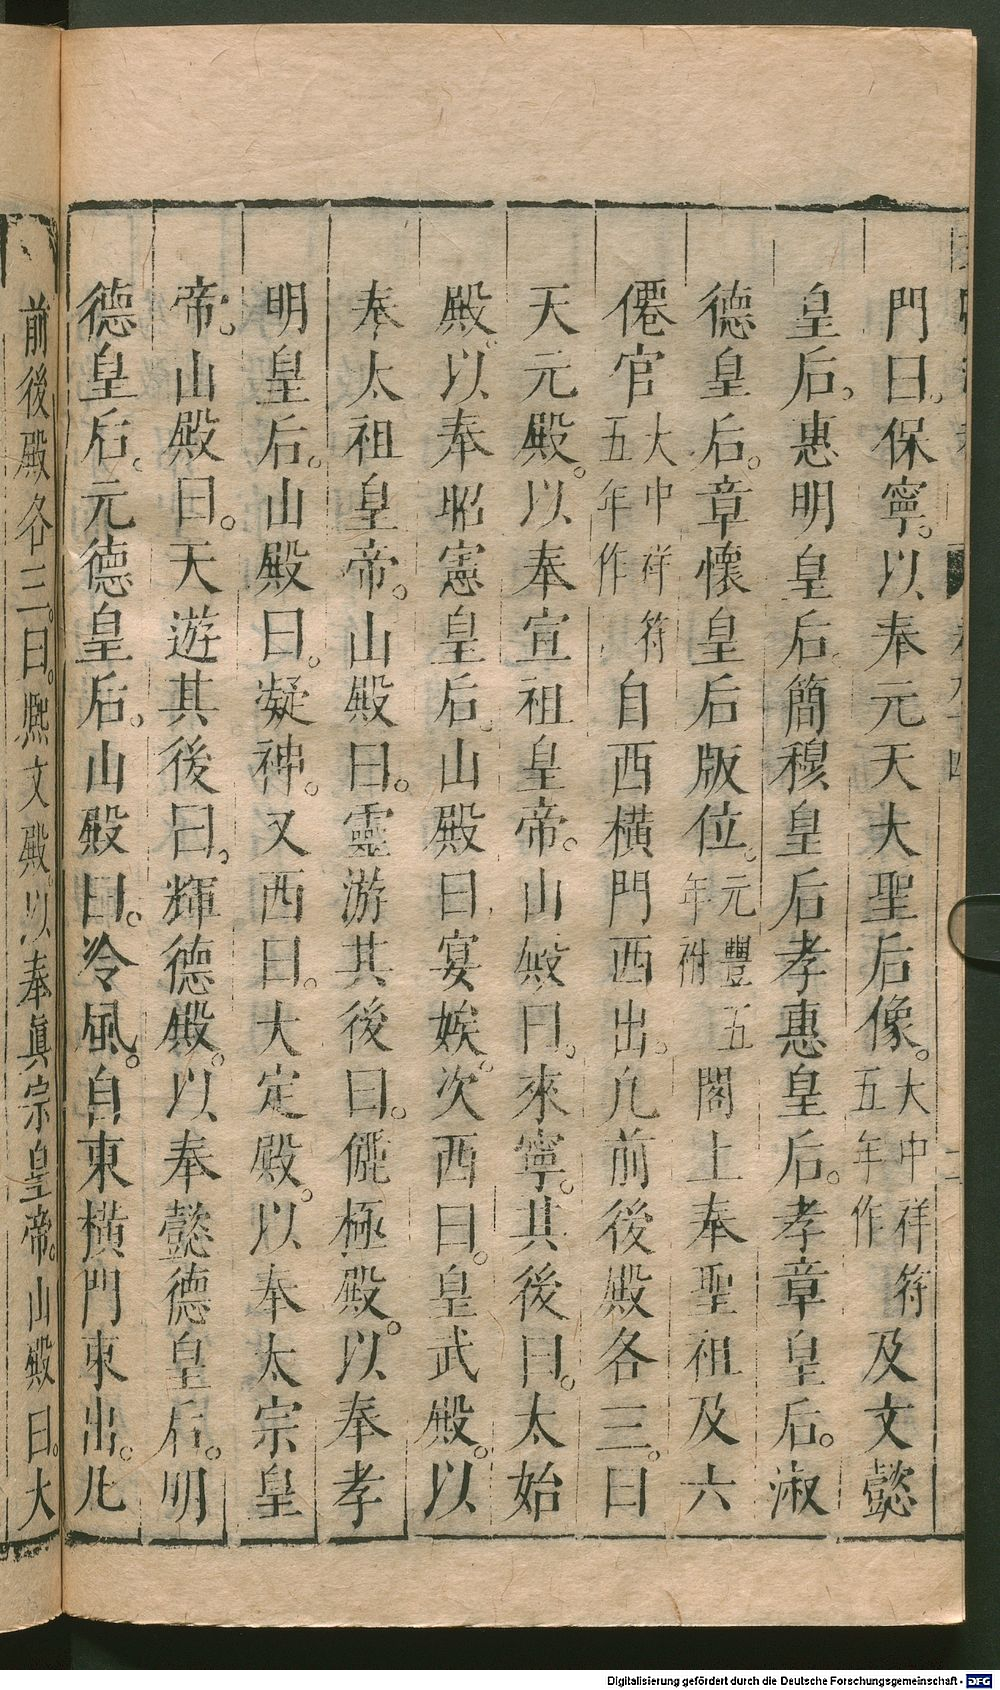 門曰。保寧。以奉元天大聖后像。大中祥符五年作及文懿
皇后。惠明皇后。簡穆皇后孝惠皇后。孝章皇后。淑
德皇后。章懷皇后版位。元豐五年祔閣上奉聖祖及六
僊官大中祥符五年作自西橫門西出。凡前後殿各三。曰
天元殿。以奉宣祖皇帝。山殿曰。來寧。其後曰。太始
殿。以奉昭憲皇后。山殿曰。宴娭。次西曰。皇武殿。以
奉太祖皇帝。山殿曰。靈游其後曰。僊極殿。以奉孝
明皇后。山殿曰。凝神。又西曰。大定殿。以奉太宗皇
帝。山殿曰。天遊其後曰。輝德殿。以奉懿德皇后。明
德皇后。元德皇后。山殿曰。冷風。自東橫門東出。凡
前後殿各三。曰。熈文殿。以奉眞宗皇帝。山殿曰。大
Digitalisierung gefördert durch die Deutsche Forschungsgemeinschaft - DFG